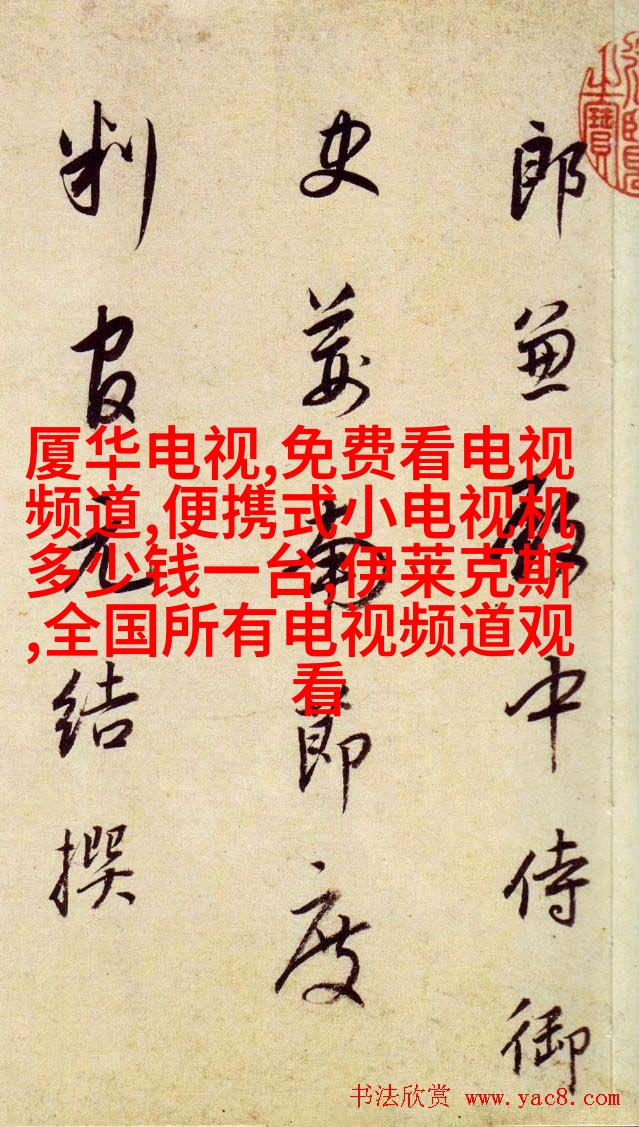 郎兼殿中侍御
史荊南節度
判官元結撰
厦华电视,免费看电视
频道,便携式小电视机
多少钱一台,伊莱克斯
,全国所有电视频道观
看
书法欣赏 www.yac8.com